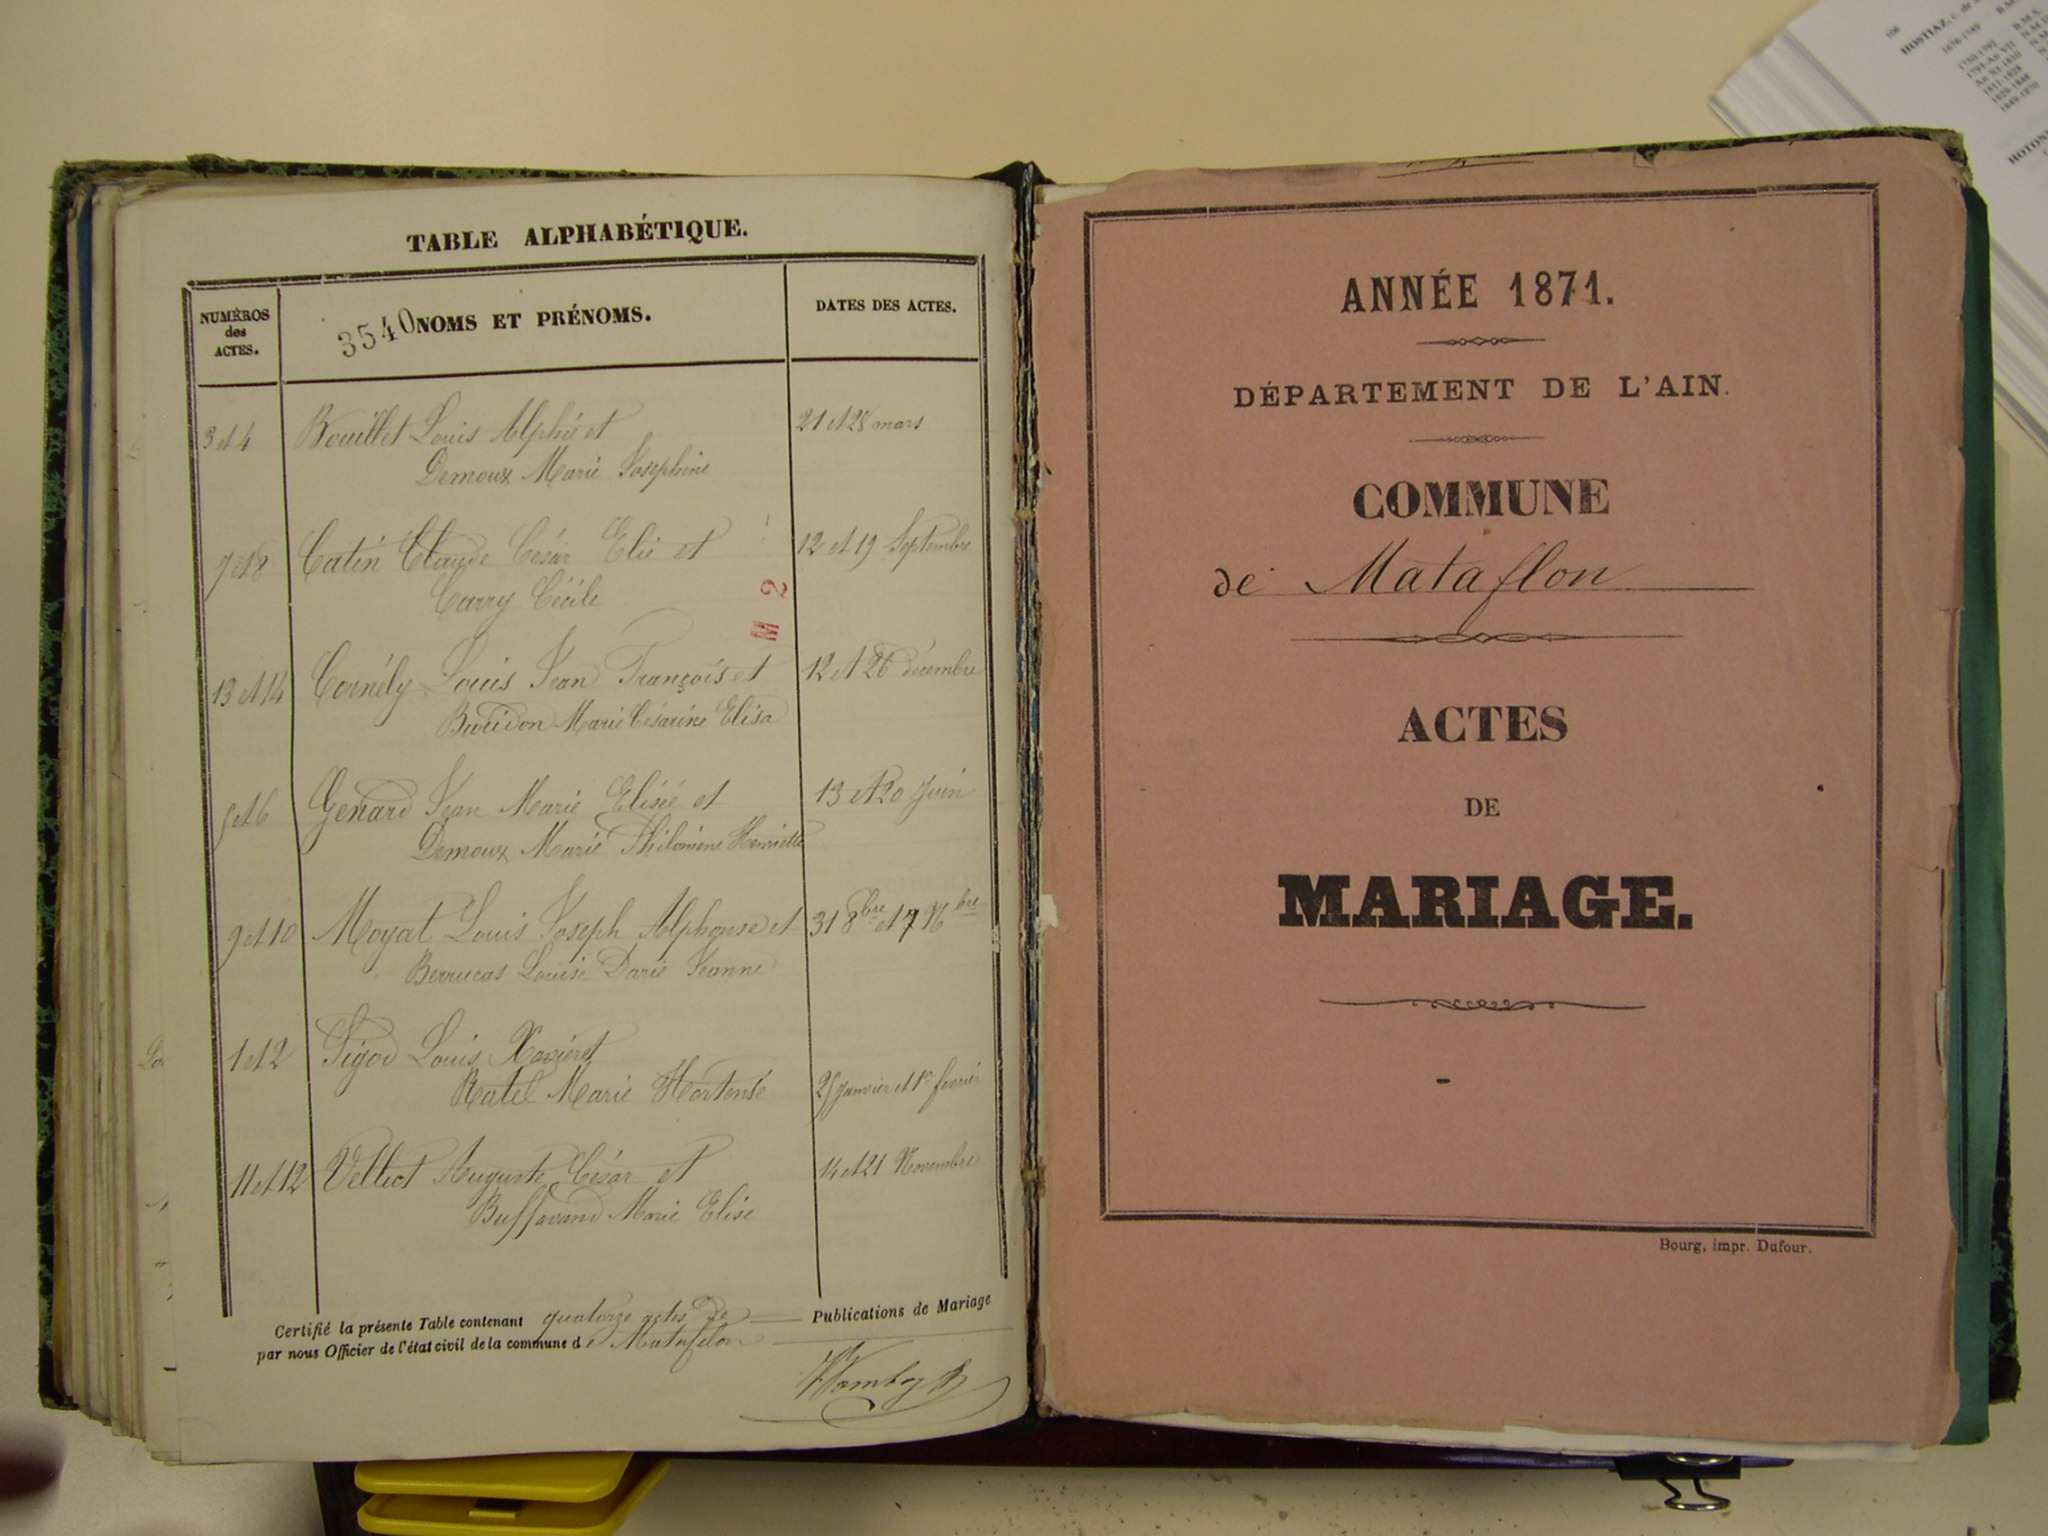 TABLE ALPHABÉTIQUE.
NUMÉROS
des
ACTES.
3540
NOMS ET PRÉNOMS.
DATES DES ACTES.
3 et 4 Bouillet Louis Alphé et 21 et 28 mars
Demoux Marie Josephine
7 et 8 Catin Claude César Elie et 12 et 19 Septembre
Carry Cécile
M 2
13 et 14 Cornély Louis Jean François et 12 et 26 décembre
Marie Césarine Elisa
5 et 6 Genard Jean Marie Elisée et 13 et 20 Juin
Demoux Marie Philomène Henriette
9 et 10 Moyat Louis Joseph Alphonse et 31 8bre et 7 9bre
Berrucas Louise Darie Jeanne
1 et 2 Pigod Louis Xavier et
Ratel Marie Hortense 25 janvier et 1er fevrier
11 et 12 Velliet Auguste César et 14 et 21 Novembre
Buffavand Marie Elise
Certifié la présente Table contenant quatorze actes de Publications de Mariage
par nous Officier de l'état civil de la commune de Matafelon
ANNÉE 1871.
DÉPARTEMENT DE L'AIN.
COMMUNE
de Mataflon
ACTES
DE
MARIAGE.
Bourg, impr. Dufour.
106
HOSTIAZ, c. de
1676-1749
1750-1792
1793-An VII
An XI-1810
1811-1828
1829-1848
1849-1870